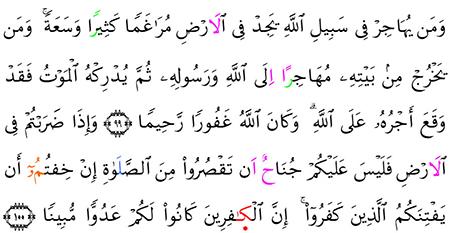 وَمَن يُهَاجِرْ فِى سَبِيلِ اللَّهِ يَجِدْ فِى الَارْضِ مُرَاغَمًا كَثِيرًا وَسَعَةً ۖ وَمَن
يَخْرُجْ مِنۢ بَيْتِهِۦ مُهَاجِرًا اِلَى اللَّهِ وَرَسُولِهِۦ ثُمَّ يُدْرِكْهُ الْمَوْتُ فَقَدْ
وَقَعَ أَجْرُهُۥ عَلَى اللَّهِ ۗ وَكَانَ اللَّهُ غَفُورًا رَحِيمًا ۝٩٩ وَإِذَا ضَرَبْتُمْ فِى
الَارْضِ فَلَيْسَ عَلَيْكُمْ جُنَاحٌ اَن تَقْصُرُوا۟ مِنَ الصَّلَوٰةِ إِنْ خِفْتُمُۥٓ أَن
يَفْتِنَكُمُ الَّذِينَ كَفَرُوٓا۟ ۚ إِنَّ الْكَٰفِرِينَ كَانُوا۟ لَكُمْ عَدُوًّا مُّبِينًا ۝١٠٠